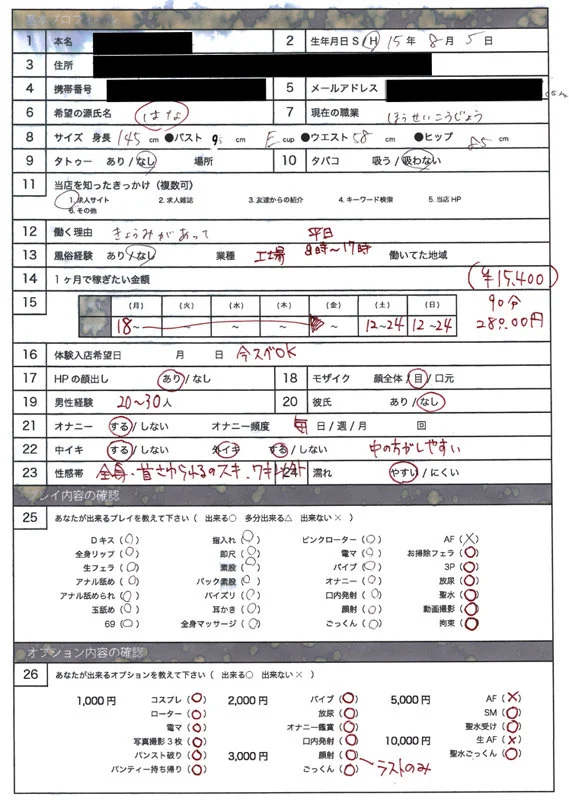 プロフィール
1 本名 2 生年月日 S/H 15年 8月 5日
3 住所
4 携帯番号 5 メールアドレス
6 希望の源氏名 はな 7 現在の職業 ほうせいこうじょう
8 サイズ 身長 145 cm ●バスト cm E cup ●ウエスト 58 cm ●ヒップ 85 cm
9 タトゥー あり/なし 場所 10 タバコ 吸う/吸わない
11 当店を知ったきっかけ(複数可)
1.求人サイト 2.求人雑誌 3.友達からの紹介 4.キーワード検索 5.当店HP
6.その他
12 働く理由 きょうみがあって 平日
13 風俗経験 あり/なし 業種 工場 8時〜17時 働いてた地域
14 1ヶ月で稼ぎたい金額 (¥15,400)
15 (月) (火) (水) (木) (金) (土) (日) 90分
18〜 〜 〜 〜 〜 12〜24 12〜24 28000円
16 体験入店希望日 月 日 今スぐOK
17 HPの顔出し あり/なし 18 モザイク 顔全体/目/口元
19 男性経験 20〜30人 20 彼氏 あり/なし
21 オナニー する/しない オナニー頻度 毎日/週/月 回
22 中イキ する/しない 外イキ する/しない 中の方がしやすい
23 性感帯 全身・首さわられるのスキ、ワキ 24 濡れ やすい/にくい
プレイ内容の確認
25 あなたが出来るプレイを教えて下さい(出来る○ 多分出来る△ 出来ない×)
Dキス(○) 指入れ(○) ピンクローター(○) AF(×)
全身リップ(○) 即尺(○) 電マ(○) お掃除フェラ(○)
生フェラ(○) 素股(○) バイブ(○) 3P(○)
アナル舐め(○) バック素股(○) オナニー(○) 放尿(○)
アナル舐められ(○) パイズリ(○) 口内発射(○) 聖水(○)
玉舐め(○) 耳かき(○) 顔射(○) 動画撮影(○)
69(○) 全身マッサージ(○) ごっくん(○) 拘束(○)
オプション内容の確認
26 あなたが出来るオプションを教えて下さい(出来る○ 出来ない×)
1,000円 コスプレ(○) 2,000円 バイブ(○) 5,000円 AF(×)
ローター(○) 放尿(○) SM(○)
電マ(○) オナニー鑑賞(○) 聖水受け(○)
写真撮影3枚(○) 口内発射(○) 10,000円 生AF(×)
パンスト破り(○) 3,000円 顔射(○) 聖水ごっくん(○)
パンティー持ち帰り(○) ごっくん(○) ラストのみ